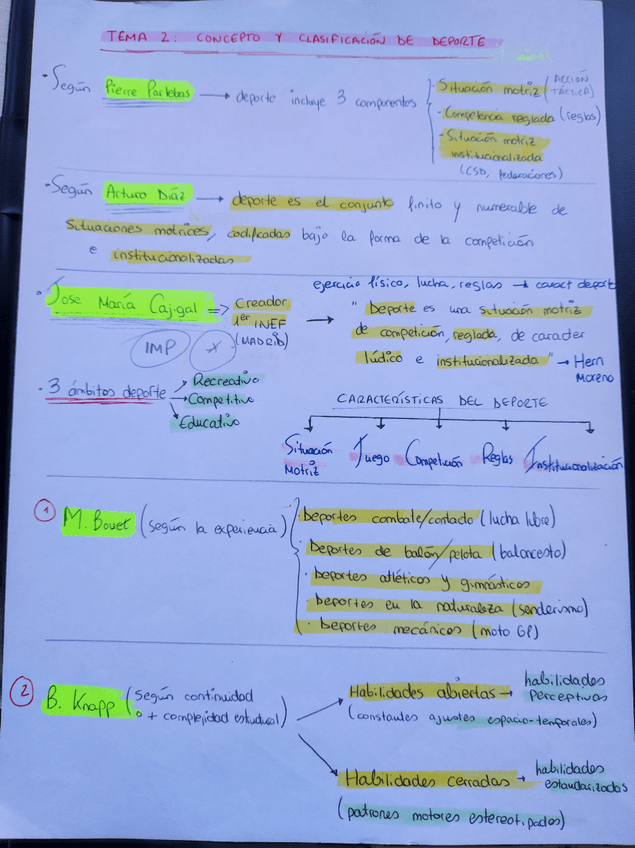 TEMA 2: CONCEPTO Y CLASIFICACIÓN DE DEPORTE
· Según Pierre Parlebas → deporte incluye 3 componentes
· Situación motriz (ACCIÓN TÁCTICA)
· Competencia reglada (reglas)
· Situación motriz
institucionalizada
(CSD, federaciones)
· Según Arturo Díaz → deporte es el conjunto finito y numerable de
situaciones motrices, codificadas bajo la forma de la competición
e institucionalizadas
· Jose María Cajigal => Creador
1er INEF
(MADRID)
IMP
ejercicio físico, lucha, reglas → caract deport
" Deporte es una situación motriz
de competición, reglada, de carácter
lúdico e institucionalizada" → Hern
Moreno
· 3 ámbitos deporte
→ Recreativo
→ Competitivo
→ Educativo
CARACTERÍSTICAS DEL DEPORTE
Situación Motriz
Juego
Competición
Reglas
Institucionalización
1 M. Bouet (según la experiencia)
· Deportes combate/contacto (lucha libre)
· Deportes de balón/pelota (baloncesto)
· Deportes atléticos y gimnásticos
· Deportes en la naturaleza (senderismo)
· Deportes mecánicos (moto GP)
2 B. Knapp (según continuidad
o + complejidad estudual)
Habilidades abiertas → habilidades
perceptivas
(constantes ajustes espacio-temporales)
Habilidades cerradas → habilidades
estandarizadas
(patrones motores estereotipados)